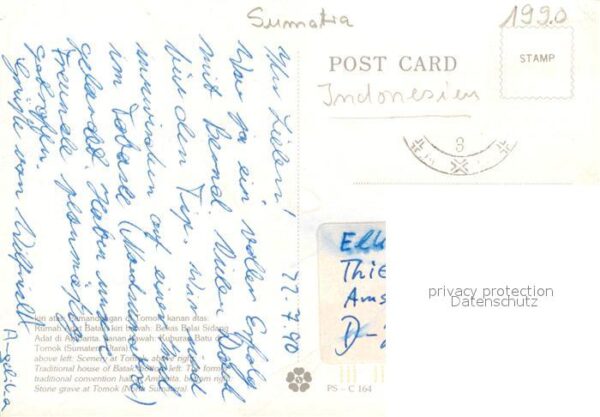 Sumatra
1990
POST CARD
STAMP
Indonesien
22.7.90
Ihr Lieben!
War ja ein voller Erfolg
mit Bernd. Vielen Dank
für den Tip. Wir sind
inzwischen auf einer Insel
im Tobasee (Nordsumatra)
gelandet. Haben unsere
Freunde planmäßig
getroffen.
Grüße von
Angelika
Thie
Ams
D-2
privacy protection
Datenschutz
kiri atas: Pemandangan di Tomok, kanan atas:
Rumah adat Batak, kiri bawah: Bekas Balai Sidang
Adat di Ambarita, kanan bawah: Kuburan Batu di
Tomok (Sumatera Utara)
above left: Scenery at Tomok, above right:
Traditional house of Batak, bottom left: The former
traditional convention hall at Ambarita, bottom right:
Stone grave at Tomok (North Sumatra)
PS - C 164